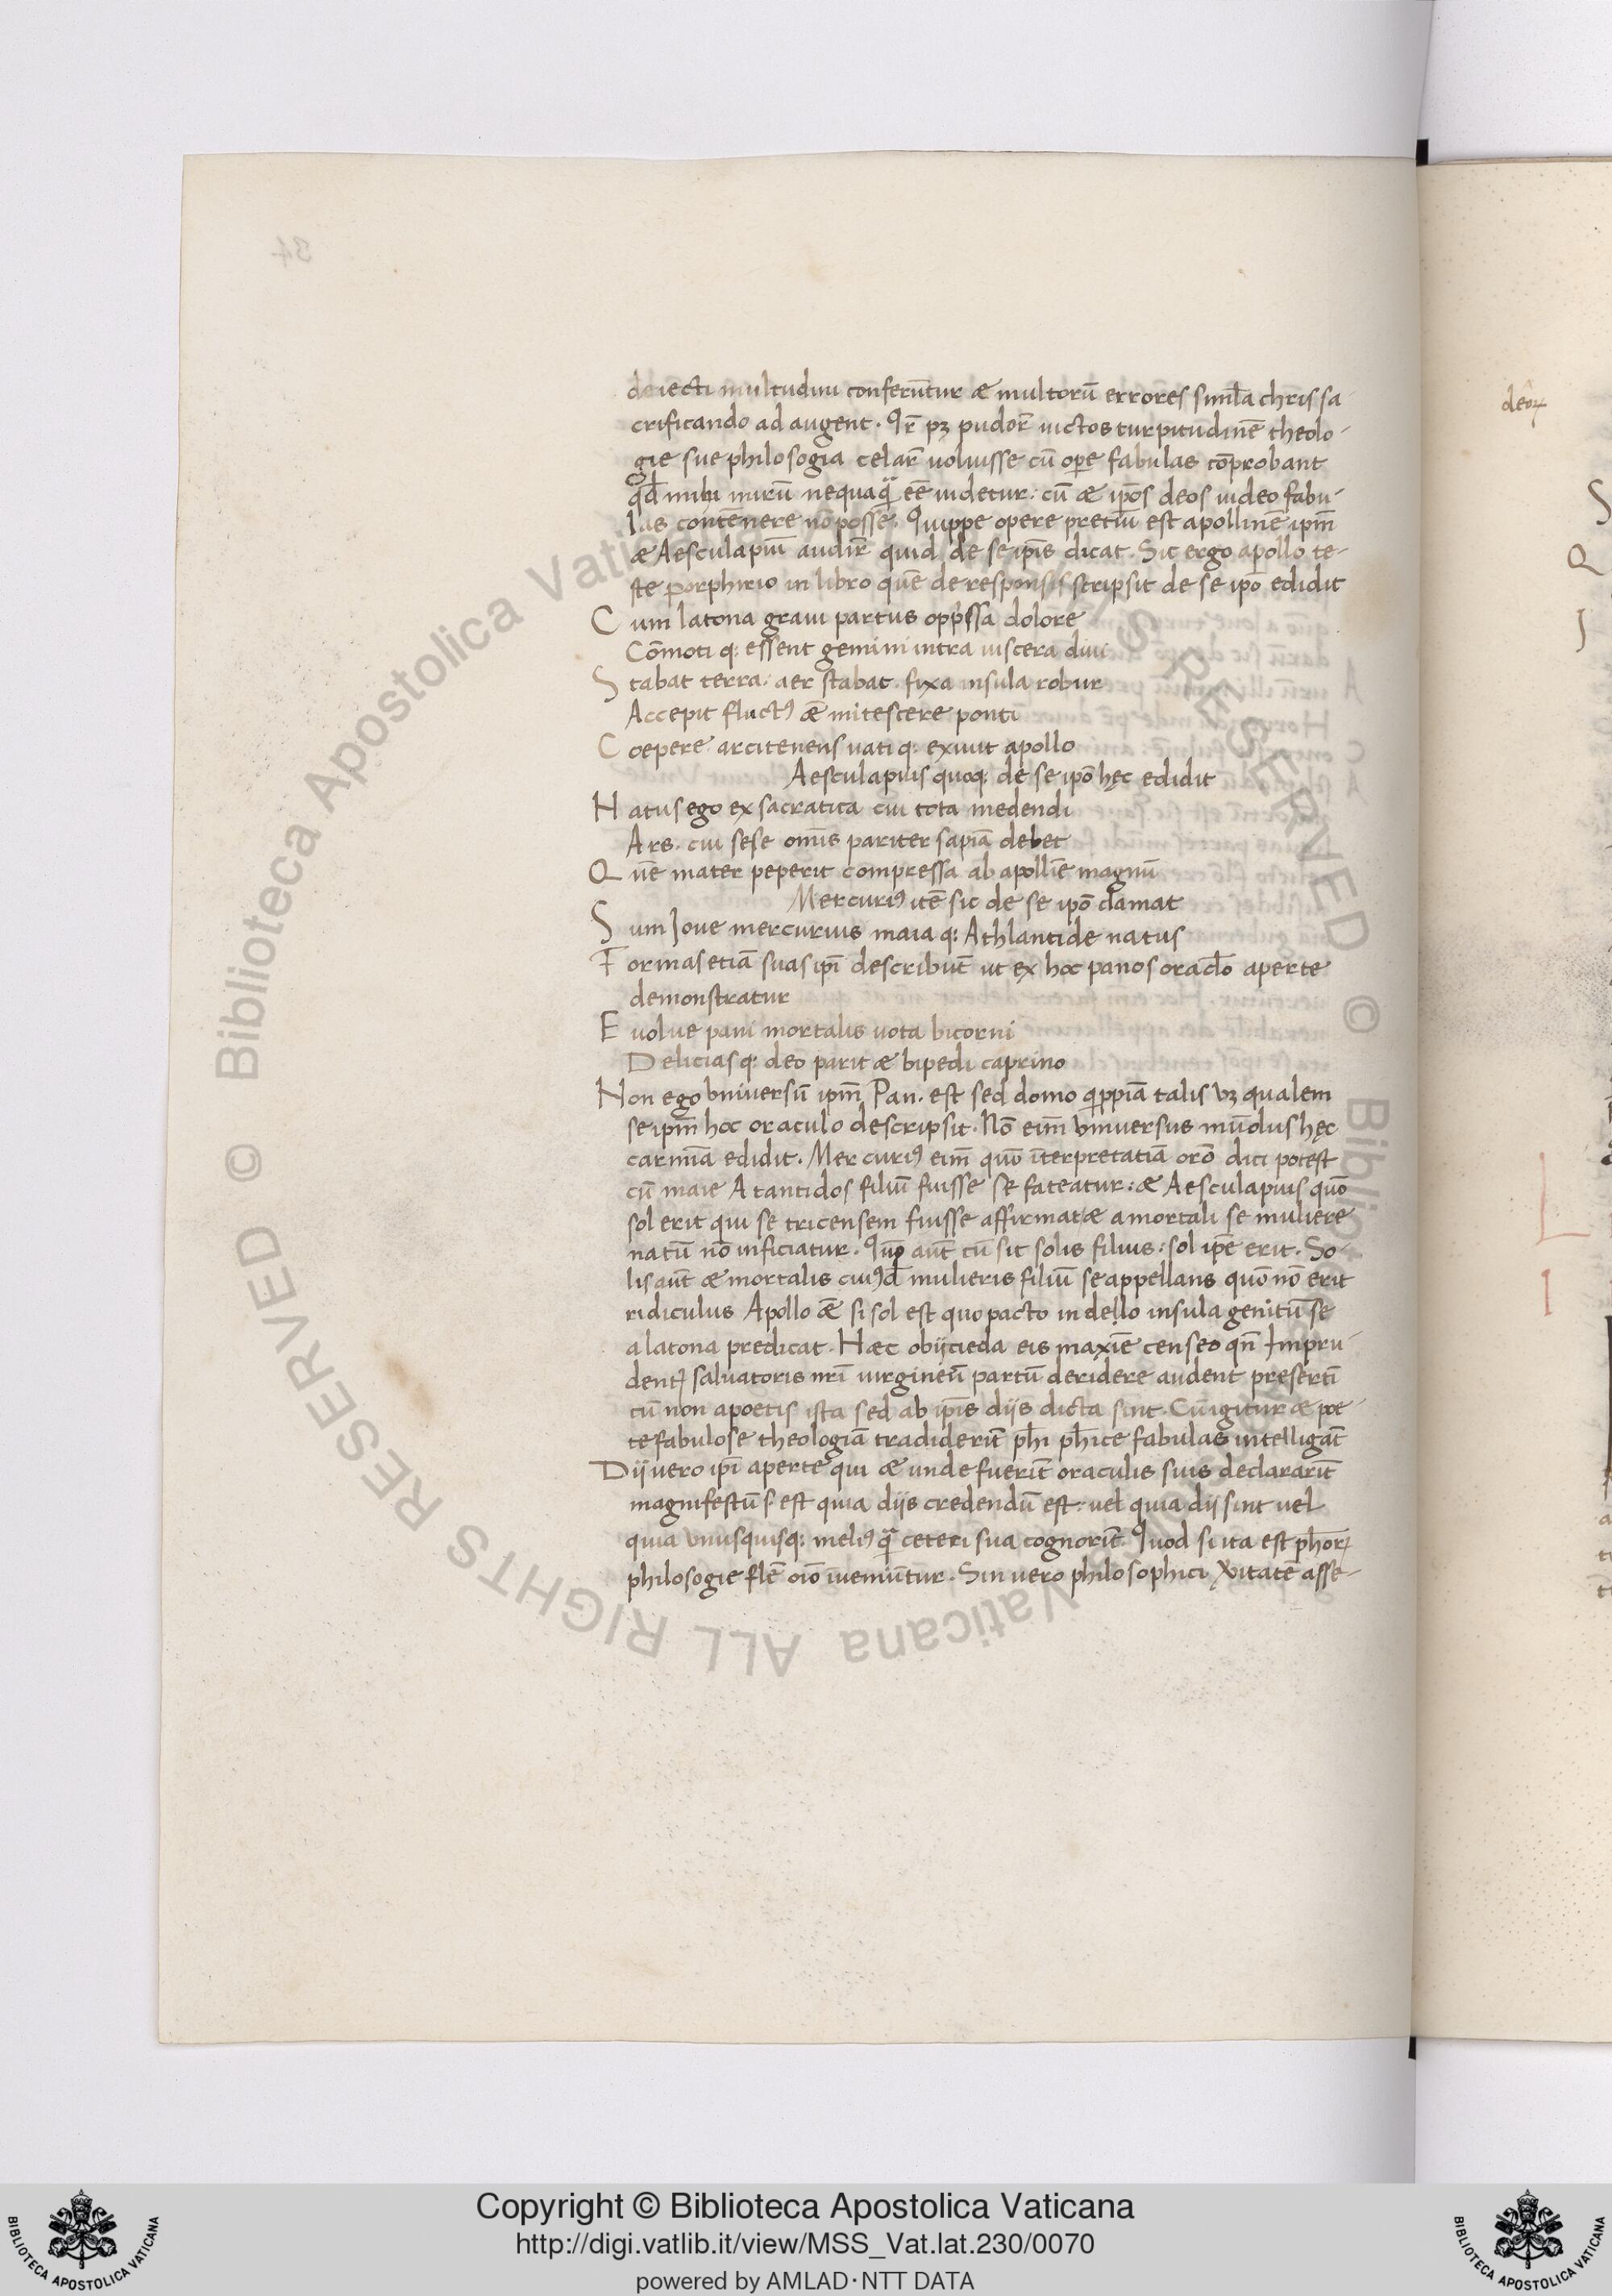 34
deiecti multudini conferūntur æ multorū errores simĺa chris sa
crificando ad augent. Qr̄ pꝫ pudor̄ uictos turpitudinē theolo-
gie sue philosogia celar̄ uoluisse cū oꝑe fabulas cōprobant
qđ mihi mirū nequaq̄ eē uidetur: cū æ ip̄os deos uideo fabu-
las contēnere nō posse. Quippe opere pretiū est apollinē ip̄m
æ Aesculapiū audir̄ quid de se ip̄is dicat. Sic ergo apollo te-
ste porphirio in libro quē de responsis scripsit de se ip̄o edidit
Cum latona graui partus opp̄ssa dolore
Cōmoti q: essent gemini intra uiscera diui
Stabat terra: aer stabat. fixa insula robur
Accepit fluctꝰ æ mitescere ponti
Coepere arcitenens uati q: exiuit apollo
Aesculapius quoq: de se ip̄o hęc edidit
Natus ego ex sacratica cui tota medendi
Ars. cui sese om̄is pariter sapiā debet
Quē mater peperit compressa ab apollīe magnū
Mercurꝰ itē sic de se ip̄o clamat
Sum Ioue mercurius maia q: Athlantide natus
Formas etiā suas ip̄i describūt ut ex hoc panos oracĺo aperte
demonstratur
Euolue pani mortalis uota bicorni
Delicias q: deo parit æ bipedi caprino
Non ego vniuersū ip̄m Pan. est sed domo q̄ppiā talis vꝫ qualem
se ip̄m hoc oraculo descripsit. Nō eīm vniuersus mūdus hęc
carmīa edidit. Mercurꝰ eīm quō īterpretatiā orō dici potest
cū maie Atantidos filiū fuisse se fateatur: æ Aesculapius quō
sol erit qui se tricensem fuisse affirmat æ a mortali se muliere
natū nō inficiatur. Quō aūt cū sit solis filius: sol ip̄e erit. So-
lis aūt æ mortalis cuiꝰđ mulieris filiū se appellans quō nō erit
ridiculus Apollo æ si sol est quo pacto in dello insula genitū se
a latona predicat. Hæc obijcieda eis maxīe censeo qn̄ Impru-
dentꝭ saluatoris nr̄i uirgineū partū deridere audent presertī
cū non apoetis ista sed ab ip̄is dijs dicta sint. Cū igitur æ poe-
te fabulose theologiā tradiderīt ph̄i ph̄ice fabulas intelligāt
Dij uero ip̄i aperte qui æ unde fuerīt oraculis suis declararīt
magnifestū ẜ est quia dijs credendū est: uel quia dij sint uel
quia vnusquisq: meliꝰ q̄ ceteri sua cognorīt. Quod si ita est ph̄orꝝ
philosogie flē oīo īuemūntur. Sin uero philosophici ꝟitatē asse-
deoꝝ
S
Q
J
L
I
Copyright © Biblioteca Apostolica Vaticana
http://digi.vatlib.it/view/MSS_Vat.lat.230/0070
powered by AMLAD·NTT DATA
BIBLIOTECA APOSTOLICA VATICANA
BIBLIOTECA APOSTOLICA VATICANA
© Biblioteca Apostolica Vaticana ALL RIGHTS RESERVED © Biblioteca Apostolica Vaticana ALL RIGHTS RESERVED